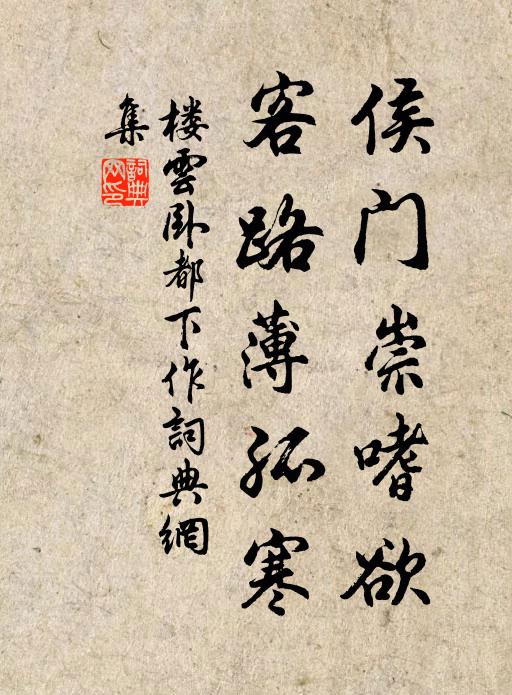 侯门崇嗜欲
客路薄孤寒
楼雲卧都下作詞典網
集
詞典
网印